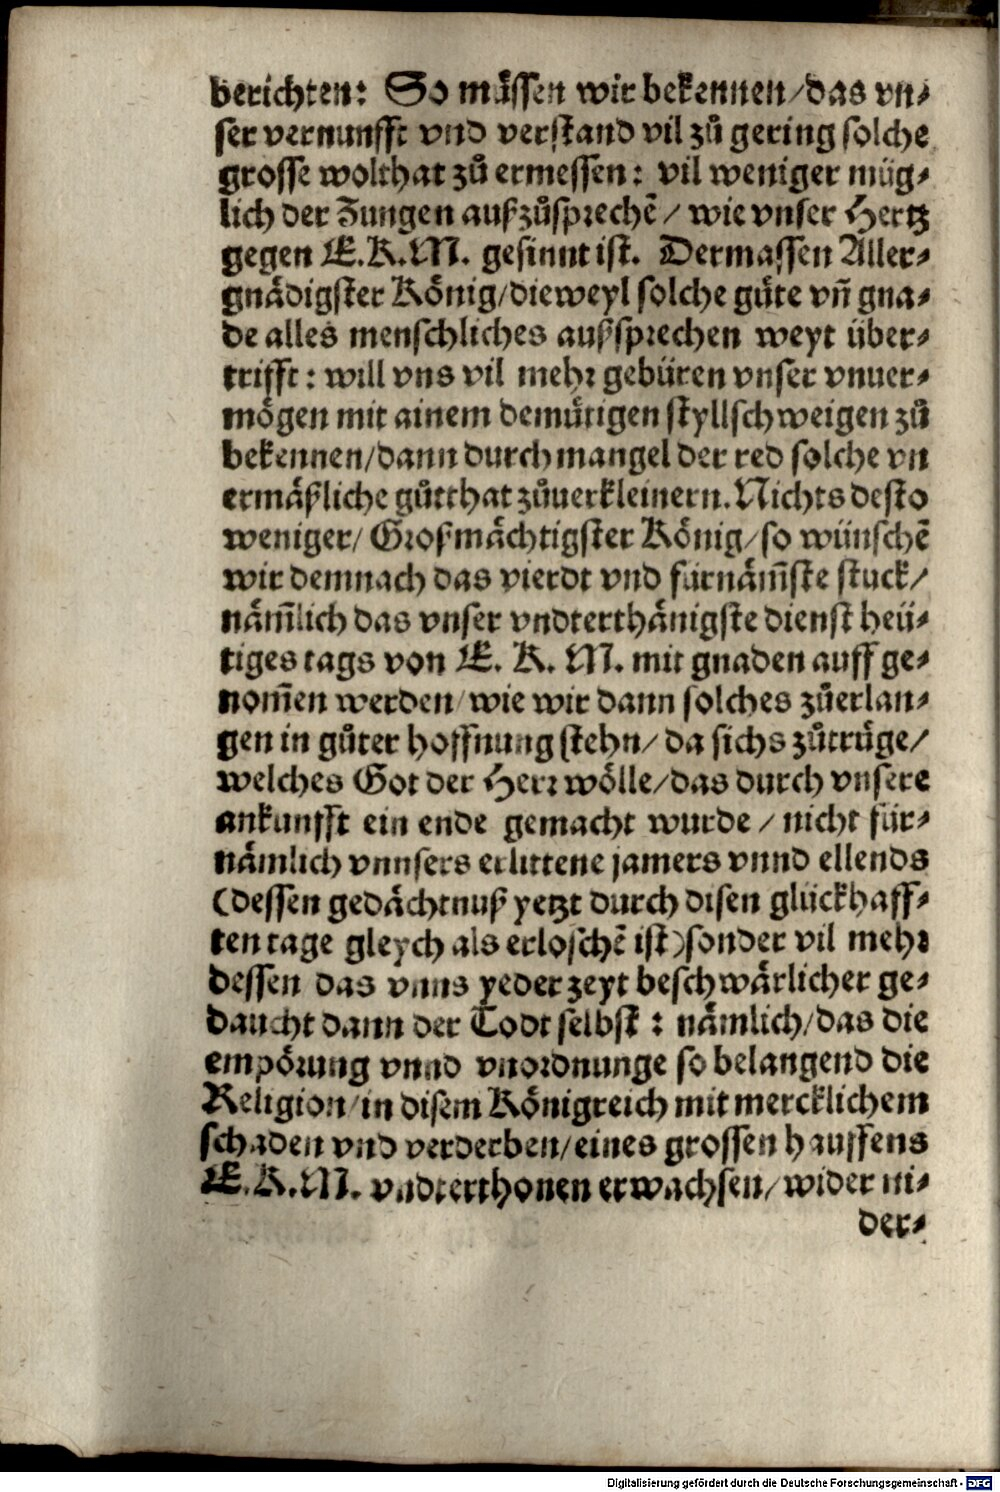 berichten: So můssen wir bekennen/das vn⸗
ser vernunfft vnd verstand vil zů gering solche
grosse wolthat zů ermessen: vil weniger müg⸗
lich der Zungen außzůsprechẽ/ wie vnser Hertz
gegen E.K.M. gesinnt ist. Dermassen Aller⸗
gnådigster König/dieweyl solche gůte vñ gna⸗
de alles menschliches außsprechen weyt über⸗
trifft: will vns vil mehr gebüren vnser vnuer⸗
mögen mit ainem demůtigen styllschweigen zů
bekennen/dann durch mangel der red solche vn
ermåßliche gůtthat zůuerkleinern. Nichts desto
weniger/ Großmåchtigster König/so wünschẽ
wir demnach das vierdt vnd fürnåm̃ste stuck/
nåm̃lich das vnser vndterthånigste dienst heü⸗
tiges tags von E. K. M. mit gnaden auff ge⸗
nom̃en werden/wie wir dann solches zůerlan⸗
gen in gůter hoffnung stehn/da sichs zůtrůge/
welches Got der Herr wölle/das durch vnsere
ankunfft ein ende gemacht wurde/nicht für⸗
nåmlich vnnsers erlittene jamers vnnd ellends
(dessen gedåchtnuß yetzt durch disen glückhaff⸗
ten tage gleych als erloschẽ ist)sonder vil mehr
dessen das vnns yeder zeyt beschwårlicher ge⸗
daucht dann der Todt selbst: nåmlich/das die
empörung vnnd vnordnunge so belangend die
Religion/in disem Königreich mit mercklichem
schaden vnd verderben/eines grossen hauffens
E.K.M. vndterthonen erwachsen/wider ni⸗
der⸗
Digitalisierung gefördert durch die Deutsche Forschungsgemeinschaft - DFG